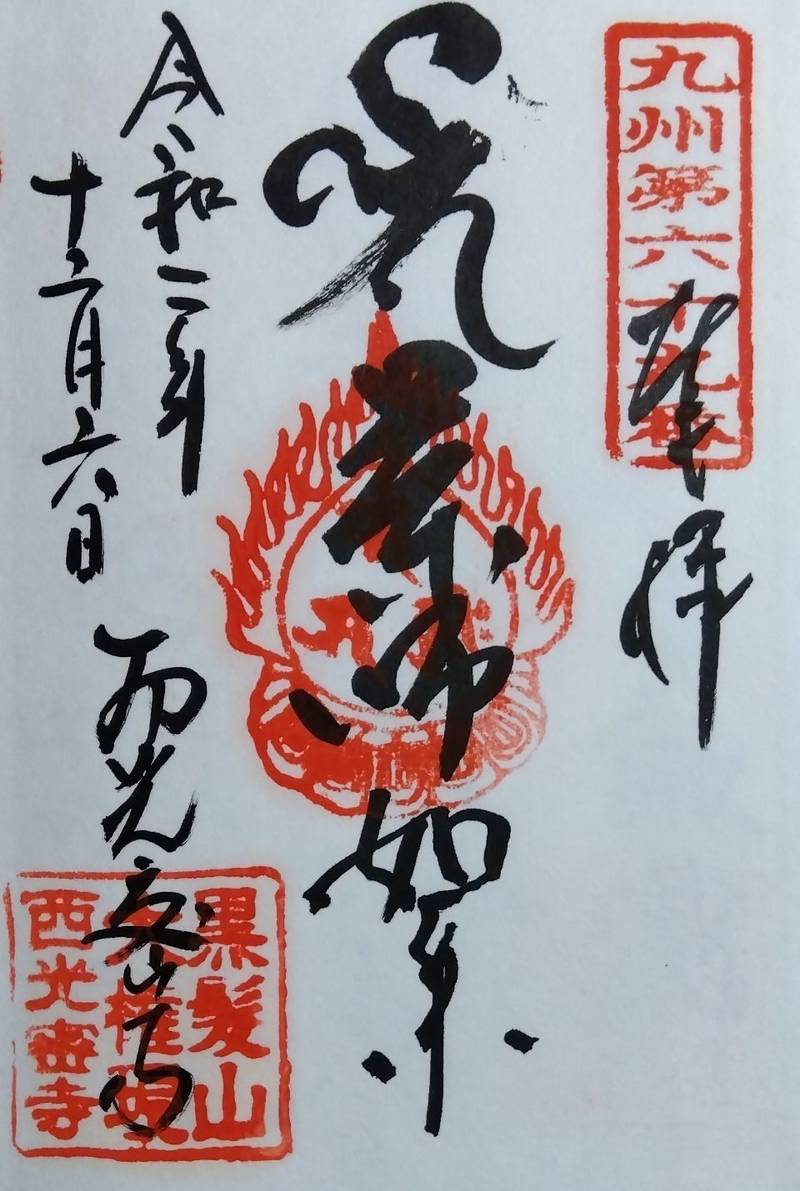 九州第六十九番
奉拝
薬師如来
令和二年
十二月六日
西光密寺
黒髪山
大権現
西光密寺